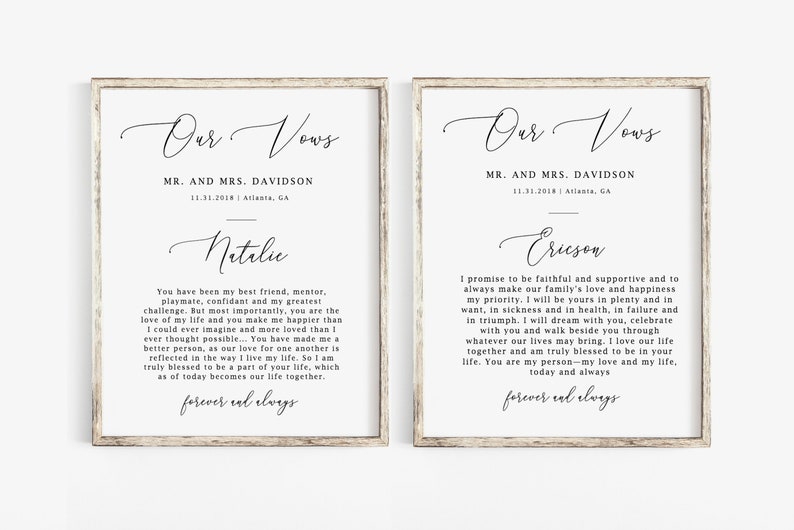 Our Vows
MR. AND MRS. DAVIDSON
11.31.2018 | Atlanta, GA
Natalie
You have been my best friend, mentor,
playmate, confidant and my greatest
challenge. But most importantly, you are the
love of my life and you make me happier than
I could ever imagine and more loved than I
ever thought possible... You have made me a
better person, as our love for one another is
reflected in the way I live my life. So I am
truly blessed to be a part of your life, which
as of today becomes our life together.
forever and always
Our Vows
MR. AND MRS. DAVIDSON
11.31.2018 | Atlanta, GA
Ericson
I promise to be faithful and supportive and to
always make our family's love and happiness
my priority. I will be yours in plenty and in
want, in sickness and in health, in failure and
in triumph. I will dream with you, celebrate
with you and walk beside you through
whatever our lives may bring. I love our life
together and am truly blessed to be in your
life. You are my person—my love and my life,
today and always
forever and always